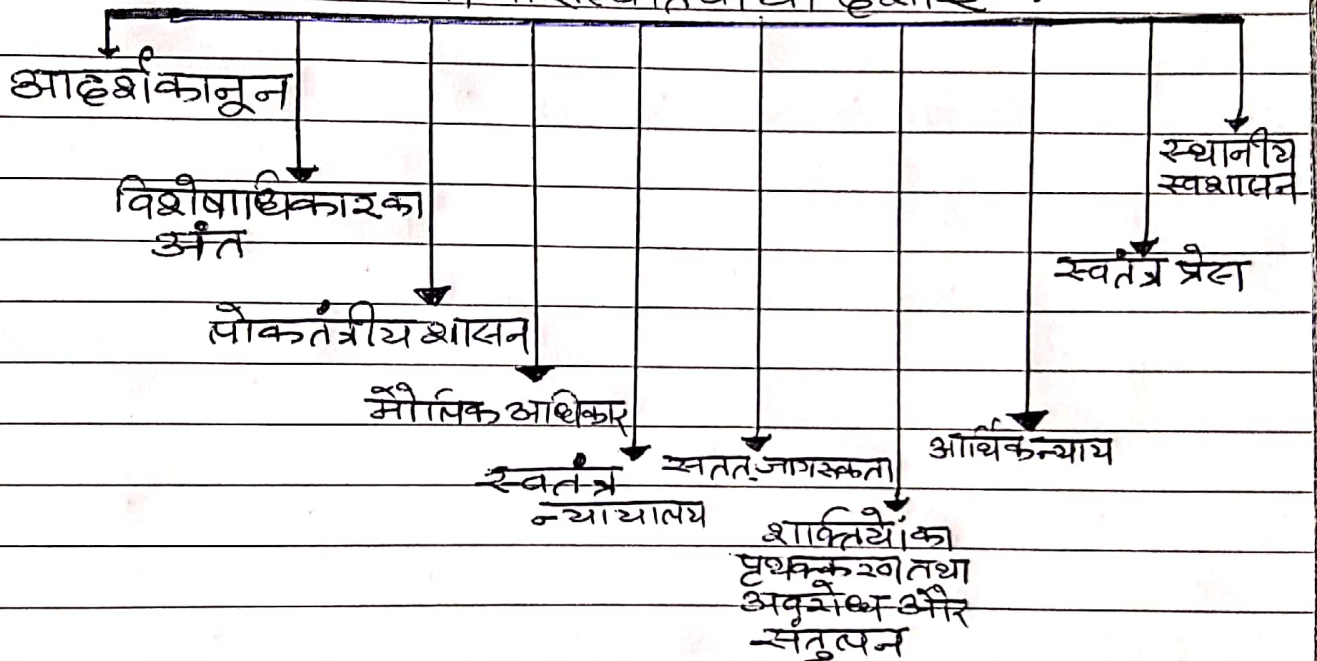 आदर्श कानून
विशेषाधिकार का
अंत
लोकतंत्रीय शासन
मौलिक अधिकार
स्वतंत्र
न्यायालय
सतत् जागरूकता
शक्तियों का
पृथक्करण तथा
अवरोध और
संतुलन
आर्थिक न्याय
स्वतंत्र प्रेस
स्थानीय
स्वशासन